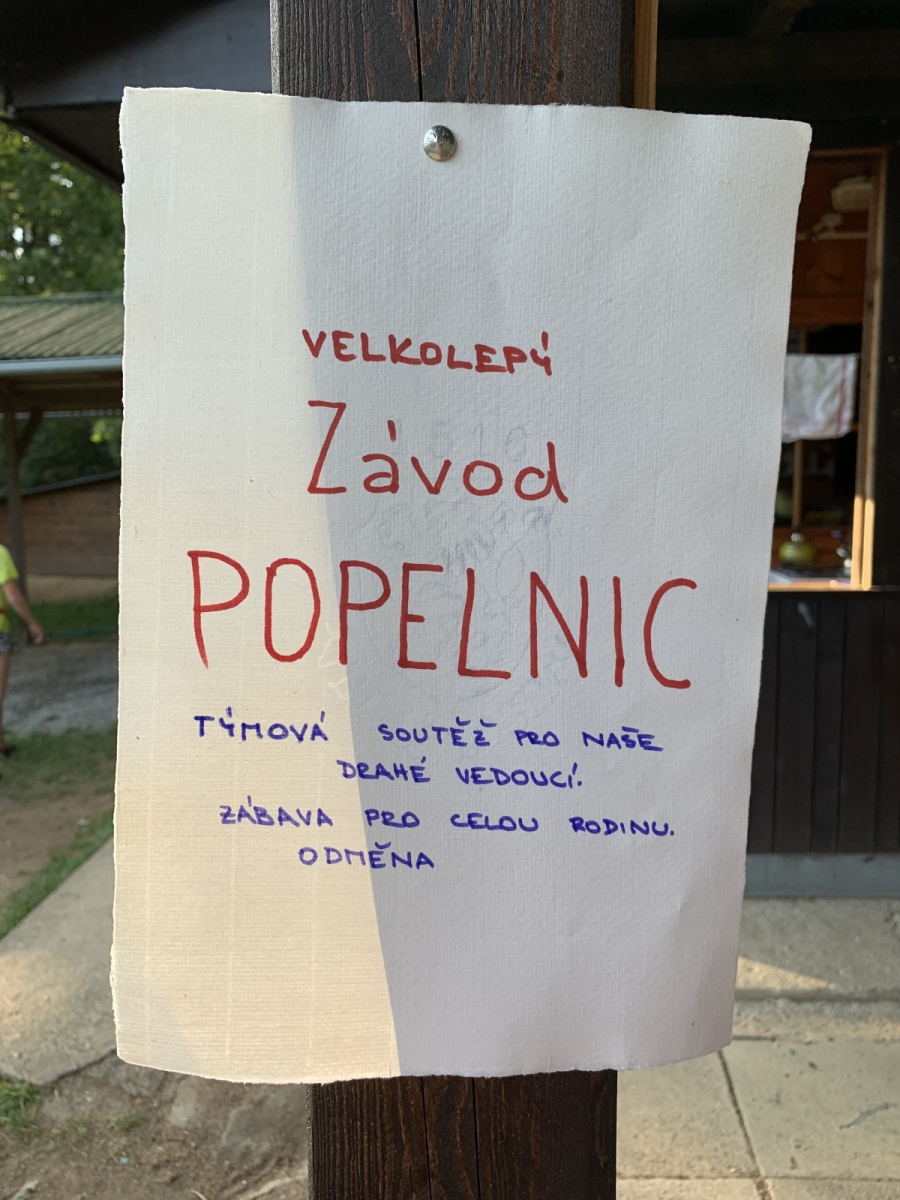 VELKOLEPÝ
Závod
POPELNIC
TÝMOVÁ SOUTĚŽ PRO NAŠE
DRAHÉ VEDOUCÍ.
ZÁBAVA PRO CELOU RODINU.
ODMĚNA